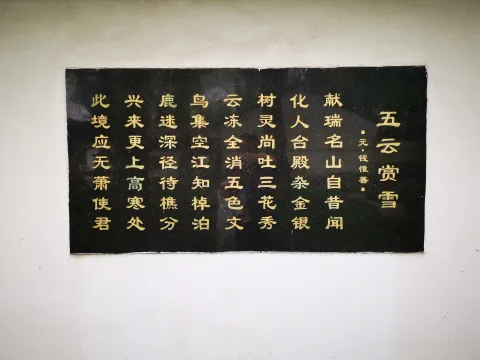 五云赏雪
·元·钱惟善·
献瑞名山自昔闻
化人台殿杂金银
树灵尚吐三花秀
云冻全消五色文
鸟集空江知棹泊
鹿迷深径待樵分
兴来更上高寒处
此境应无萧使君